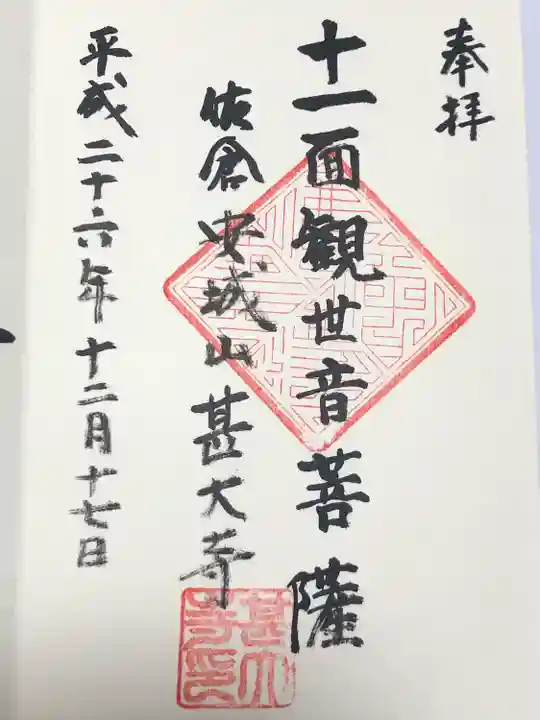 奉拝
十一面観世音菩薩
佐倉安城山甚大寺
平成二十六年十二月十七日
甚大寺印